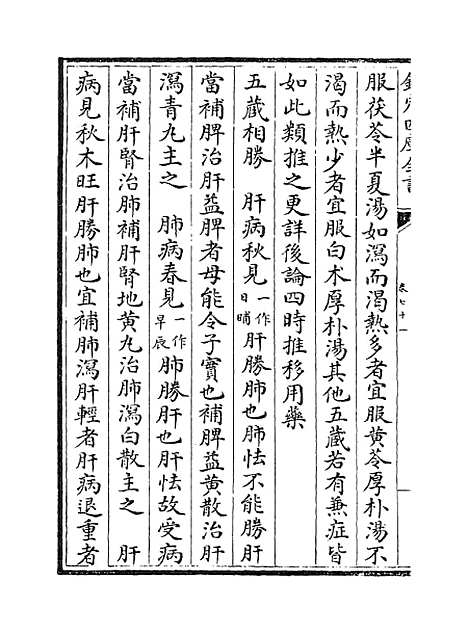 欽定四庫全書
卷七十一
服茯苓半夏湯如瀉而渴熱多者宜服黄芩厚朴湯不
渴而熱少者宜服白术厚朴湯其他五藏若有兼症皆
如此類推之更詳後論四時推移用藥
五藏相勝　肝病秋見一作日晡肝勝肺也肺怯不能勝肝
當補脾治肝益脾者母能令子實也補脾益黄散治肝
瀉青丸主之　肺病春見一作早辰肺勝肝也肝怯故受病
當補肝腎治肺補肝腎地黄丸治肺瀉白散主之　肝
病見秋木旺肝勝肺也宜補肺瀉肝輕者肝病退重者